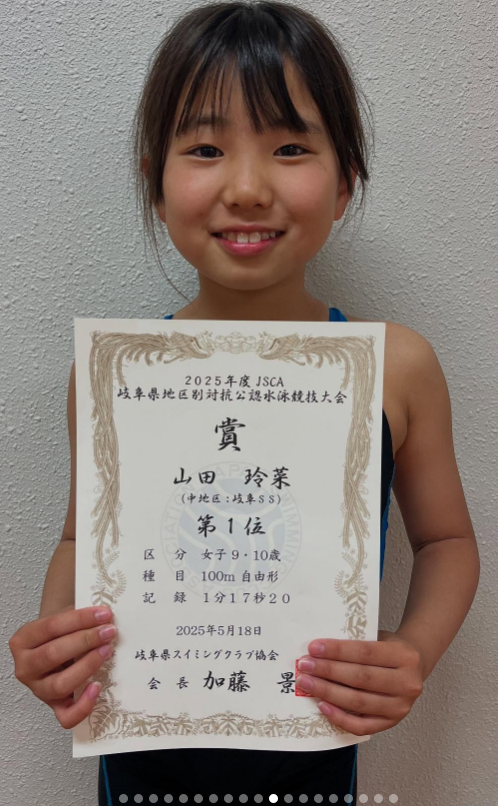 2025年度 JSCA
岐阜県地区別対抗公認水泳競技大会
賞
山田 玲菜
(中地区：岐阜SS)
第1位
区 分 女子9・10歳
種 目 100m 自由形
記 録 1分17秒20
2025年5月18日
岐阜県スイミングクラブ協会
会 長 加藤 景